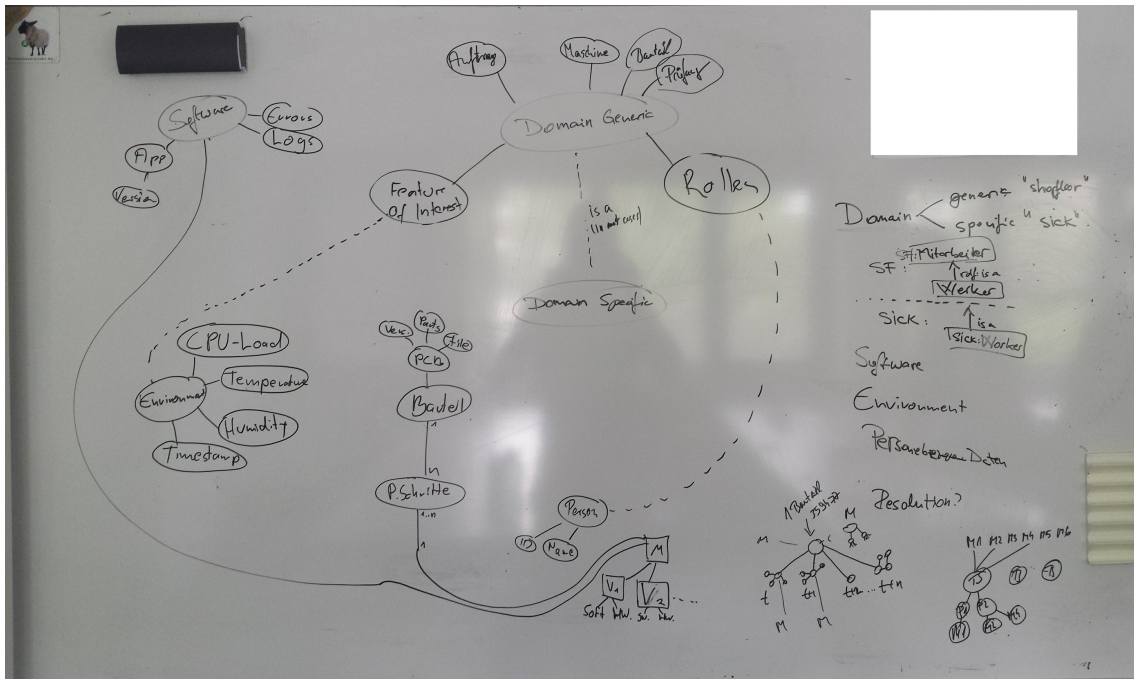 Software
Errors
Logs
App
Version
Auftrag
Maschine
Bauteil
Prüfung
Domain Generic
Feature
Of Interest
Rollen
is a
(in most cases)
Domain Specific
CPU-Load
Environment
Temperature
Humidity
Timestamp
Vers.
Parts
File
PCB
Bauteil
1
n
P.Schritte
1..n
1
Person
ID
Name
M
V1
V2
Soft
HW.
SW.
HW.
Domain
generic "shopfloor"
spezific "sick"
SF:
SF:Mitarbeiter
rdf:is a
Werker
Sick:
is a
Sick:Worker
Software
Environment
Personenbezogene Daten
Resolution?
1 Bauteil
M
M
t
t+1
t+2
... t+n
M
M
M1 M2 M3 M4 M5 M6